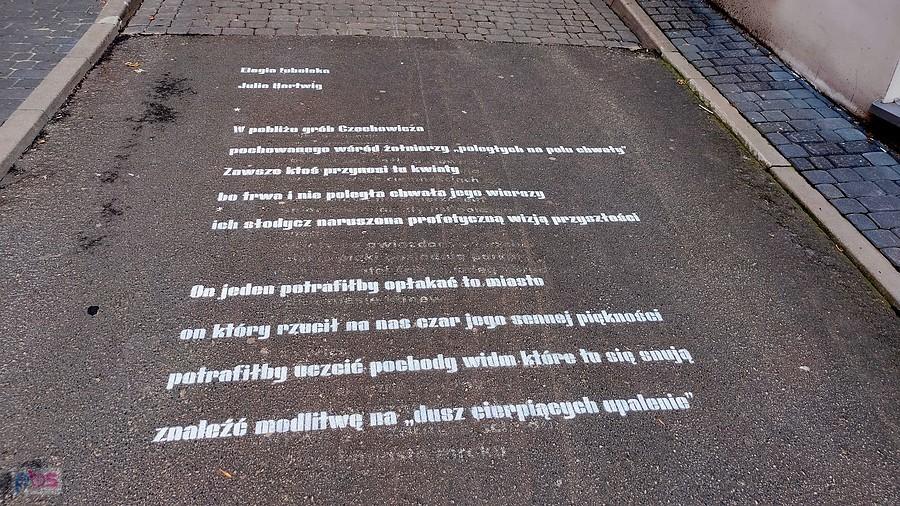 Elegia lubelska
Julia Hartwig
*
W pobliżu grób Czechowicza
pochowanego wśród żołnierzy „poległych na polu chwały"
Zawsze ktoś przynosi tu kwiaty
bo trwa i nie poległa chwała jego wierszy
*
ich słodycz naruszona profetyczną wizją przyszłości
On jeden potrafiłby opłakać to miasto
on który rzucił na nas czar jego sennej piękności
potrafiłby uczcić pochody widm które tu się snują
znaleźć modlitwę na „dusz cierpiących upalenie"